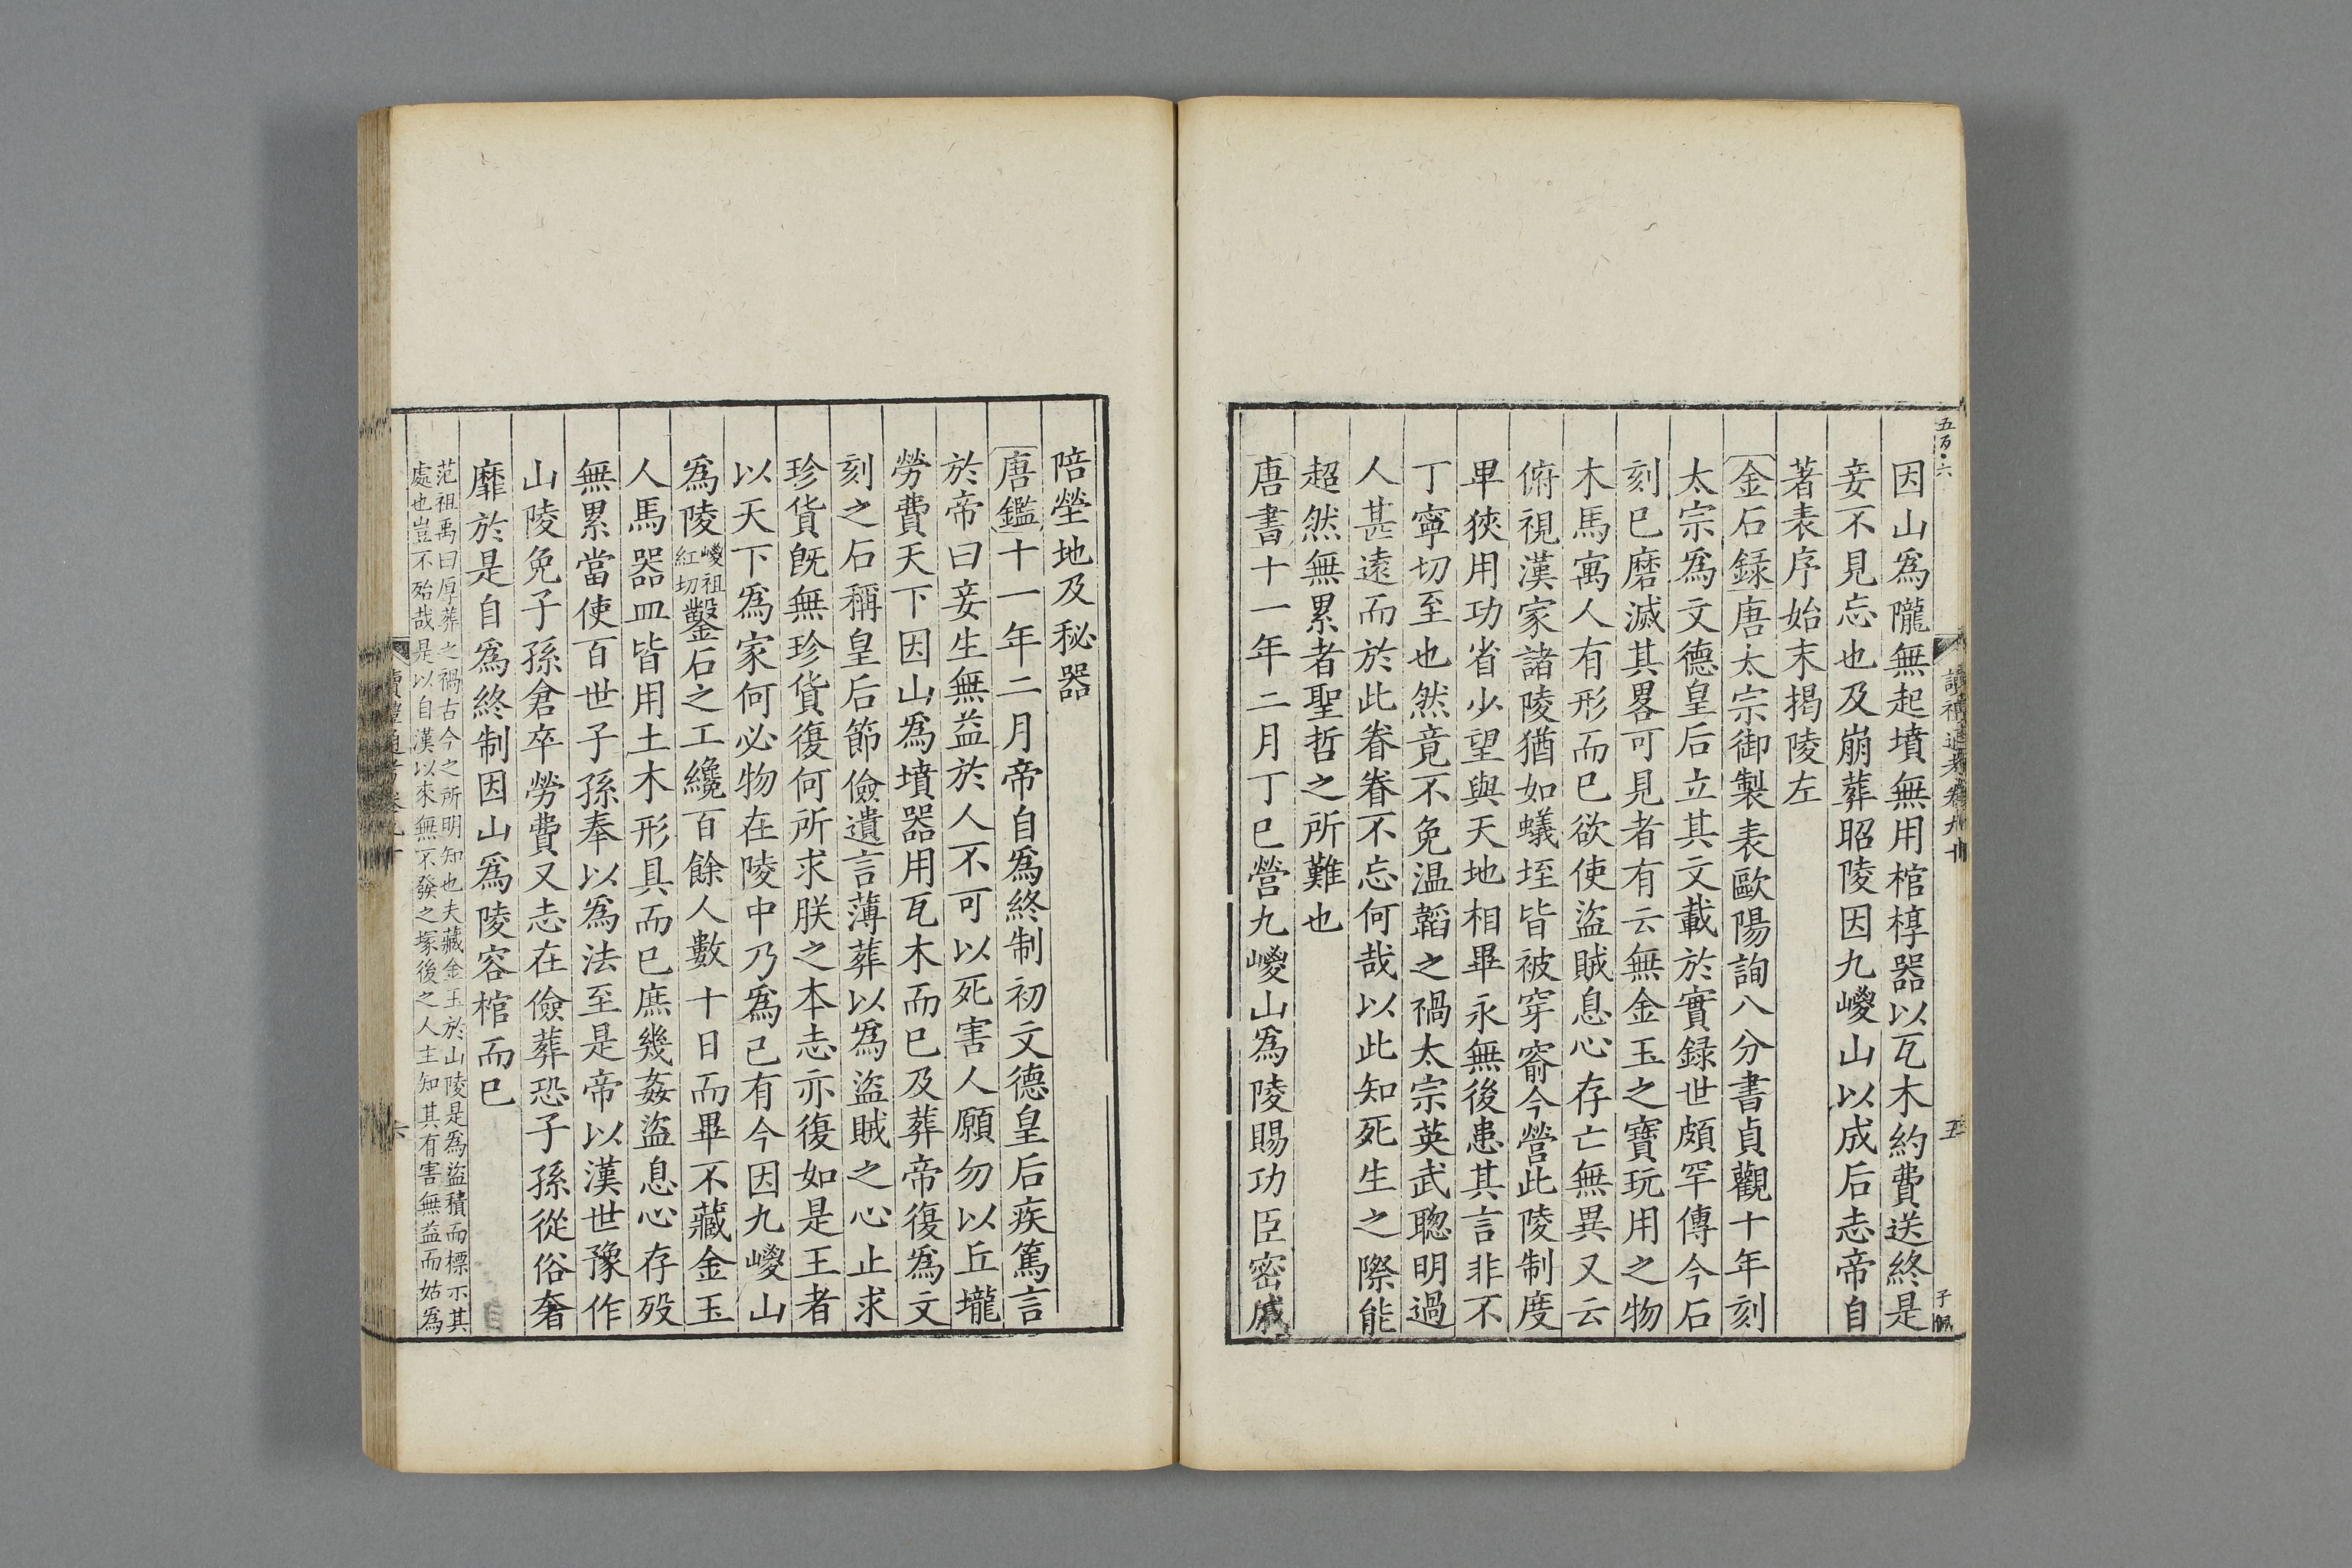 五百六
讀禮通考卷九十
五
子佩
因山爲隴無起墳無用棺椁器以瓦木約費送終是
妾不見忘也及崩葬昭陵因九嵕山以成后志帝自
著表序始末揭陵左
金石録唐太宗御製表歐陽詢八分書貞觀十年刻
太宗爲文德皇后立其文載於實録世頗罕傳今石
刻已磨滅其畧可見者有云無金玉之寶玩用之物
木馬寓人有形而已欲使盜賊息心存亡無異又云
俯視漢家諸陵猶如蟻垤皆被穿窬今營此陵制度
卑狹用功省少望與天地相畢永無後患其言非不
丁寧切至也然竟不免温韜之禍太宗英武聰明過
人甚遠而於此眷眷不忘何哉以此知死生之際能
超然無累者聖哲之所難也
唐書十一年二月丁巳營九嵕山爲陵賜功臣密戚
陪塋地及秘器
唐鑑十一年二月帝自爲終制初文德皇后疾篤言
於帝曰妾生無益於人不可以死害人願勿以丘壠
勞費天下因山爲墳器用瓦木而已及葬帝復爲文
刻之石稱皇后節儉遺言薄葬以爲盜賊之心止求
珍貨既無珍貨復何所求朕之本志亦復如是王者
以天下爲家何必物在陵中乃爲己有今因九嵕山
爲陵嵕祖紅切鑿石之工纔百餘人數十日而畢不藏金玉
人馬器皿皆用土木形具而已庶幾姦盜息心存殁
無累當使百世子孫奉以爲法至是帝以漢世豫作
山陵免子孫倉卒勞費又志在儉葬恐子孫從俗奢
靡於是自爲終制因山爲陵容棺而已
范祖禹曰厚葬之禍古今之所明知也夫藏金玉於山陵是爲盜積而標示其
處也豈不殆哉是以自漢以來無不發之塚後之人主知其有害無益而姑爲
讀禮通考卷九十
六